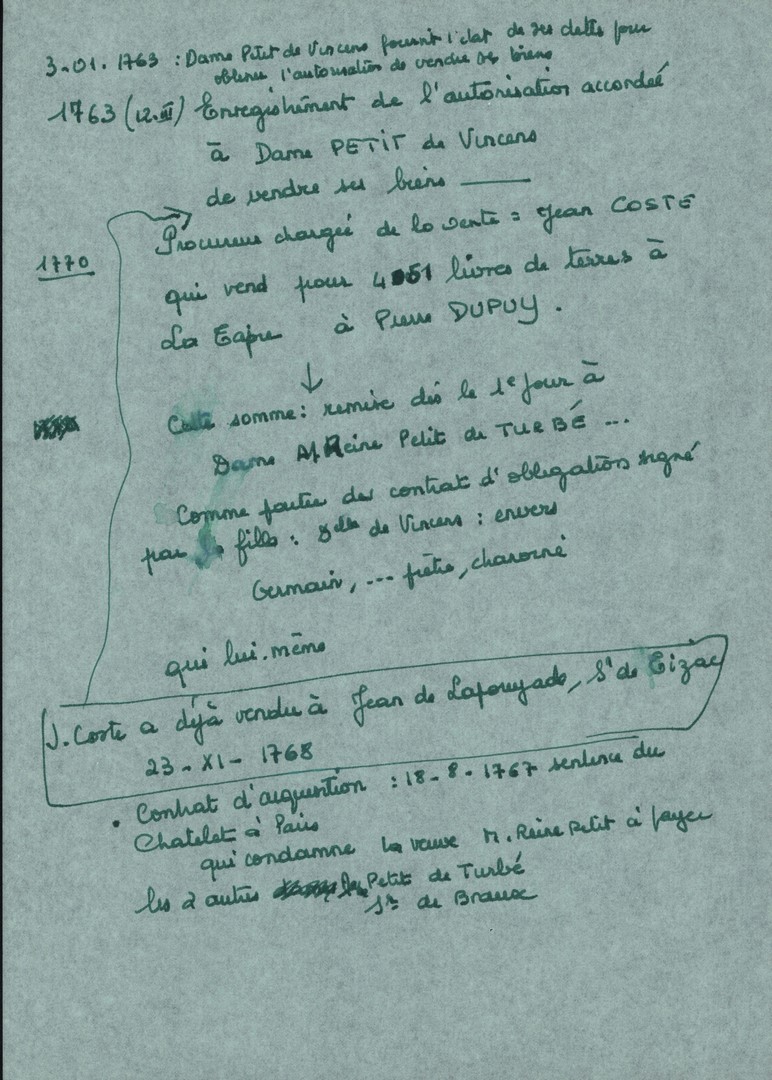 3-01. 1763 : Dame Petit de Vincens fournit l'état de ses dettes pour
obtenir l'autorisation de vendre ses biens
1763 (12.III) Enregistrement de l'autorisation accordée
à Dame PETIT de Vincens
de vendre ses biens
Procureur chargé de la vente : Jean COSTE
1770
qui vend pour 4051 livres de terres à
La Tapie à Pierre DUPUY.
Cette somme : remise dès le 1e jour à
Dame M. Reine Petit de TURBÉ ...
Comme partie des contrat d'obligations signé
par fille : delle de Vincens : envers
Germain, ... prêtre, chanoine
qui lui-même
J. Coste a déjà vendu à Jean de Lapouyade, Sr de Tizac
23 - XI - 1768
• Contrat d'acquisition : 18 - 8 - 1767 sentence du
Chatelet à Paris
qui condamne la veuve M. Reine Petit à payer
les 2 autres Petit de Turbé
Sr de Braux